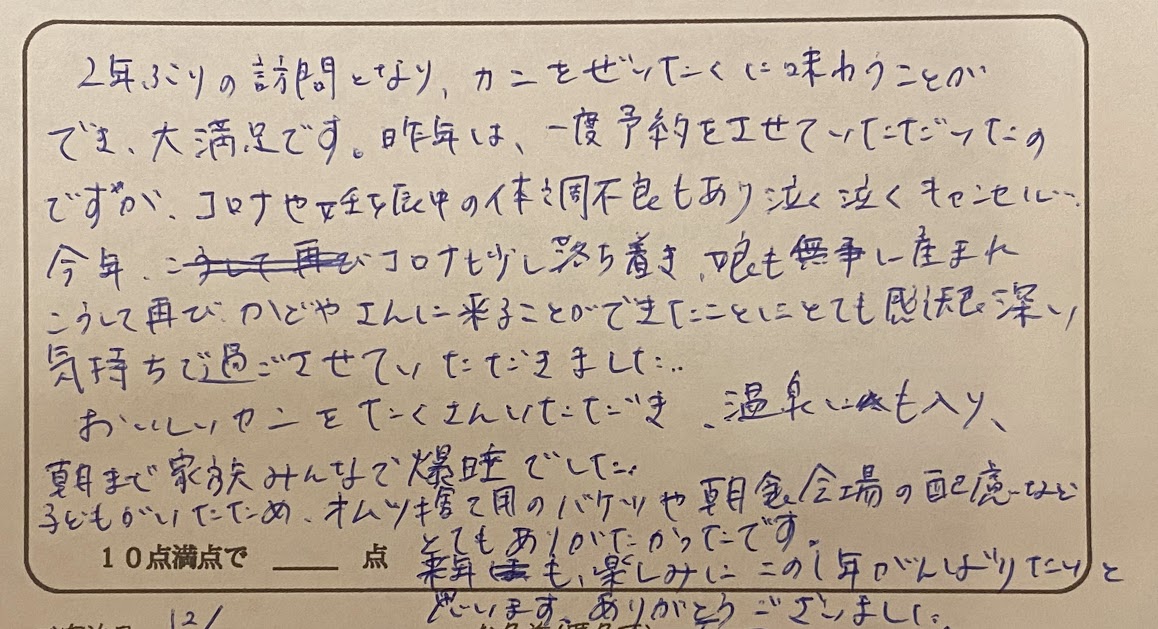 2年ぶりの訪問となり、カニをぜいたくに味わうことが
でき、大満足です。昨年は、一度予約をさせていただいたの
ですが、コロナや妊娠中の体調不良もあり泣く泣くキャンセル…
今年、こうして再びコロナも少し落ち着き、娘も無事に産まれ
こうして再び、かどやさんに来ることができたことにとても感慨深い
気持ちで過ごさせていただきました。
おいしいカニをたくさんいただき、温泉にも入り、
朝まで家族みんなで爆睡でした。
子どもがいたため、オムツ捨て用のバケツや朝食会場の配慮など
とてもありがたかったです。
10点満点で ____ 点
来年も、楽しみにこの1年がんばりたいと
思います。ありがとうございました。
12/